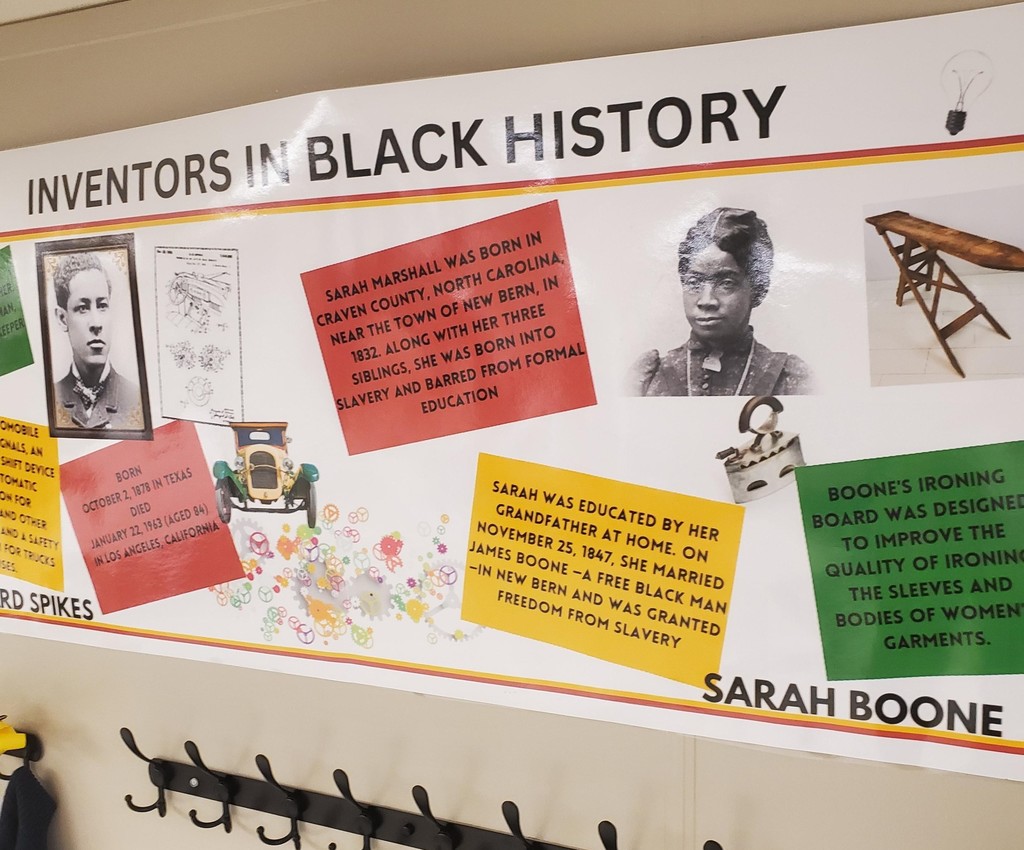 INVENTORS IN BLACK HISTORY
KEEPER
OMOBILE
GNALS, AN
SHIFT DEVICE
TOMATIC
ON FOR
AND OTHER
AND A SAFETY
FOR TRUCKS
SES.
BORN
OCTOBER 2, 1878 IN TEXAS
DIED
JANUARY 22, 1963 (AGED 84)
IN LOS ANGELES, CALIFORNIA
RD SPIKES
SARAH MARSHALL WAS BORN IN
CRAVEN COUNTY, NORTH CAROLINA,
NEAR THE TOWN OF NEW BERN, IN
1832. ALONG WITH HER THREE
SIBLINGS, SHE WAS BORN INTO
SLAVERY AND BARRED FROM FORMAL
EDUCATION
SARAH WAS EDUCATED BY HER
GRANDFATHER AT HOME. ON
NOVEMBER 25, 1847, SHE MARRIED
JAMES BOONE –A FREE BLACK MAN
–IN NEW BERN AND WAS GRANTED
FREEDOM FROM SLAVERY
BOONE'S IRONING
BOARD WAS DESIGNED
TO IMPROVE THE
QUALITY OF IRONING
THE SLEEVES AND
BODIES OF WOMEN'
GARMENTS.
SARAH BOONE